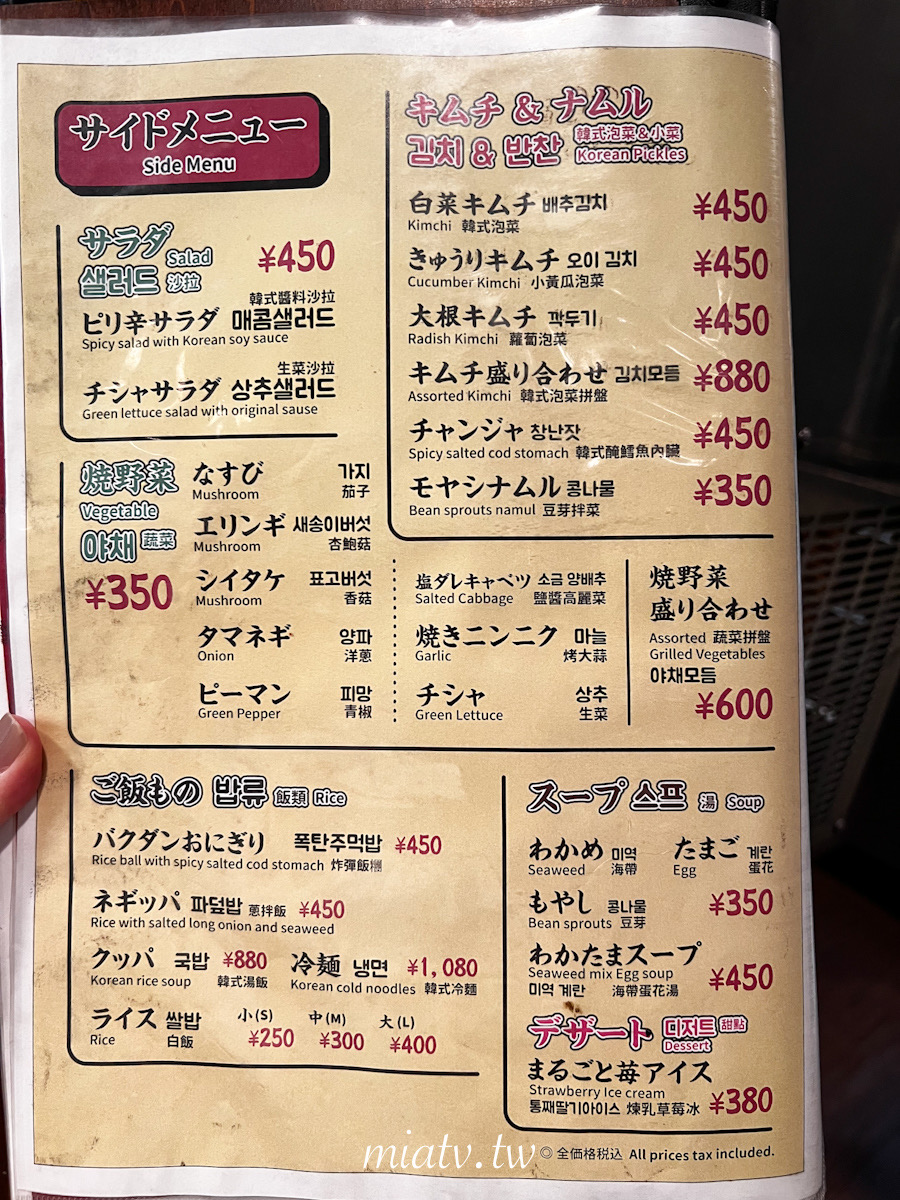 サイドメニュー
Side Menu
サラダ Salad ¥450
샐러드 沙拉
韓式醬料沙拉
ピリ辛サラダ 매콤샐러드
Spicy salad with Korean soy sauce
生菜沙拉
チシャサラダ 상추샐러드
Green lettuce salad with original sause
キムチ & ナムル
김치 & 반찬 韓式泡菜&小菜
Korean Pickles
白菜キムチ 배추김치 ¥450
Kimchi 韓式泡菜
きゅうりキムチ 오이 김치 ¥450
Cucumber Kimchi 小黃瓜泡菜
大根キムチ 깍두기 ¥450
Radish Kimchi 蘿蔔泡菜
キムチ盛り合わせ 김치모듬 ¥880
Assorted Kimchi 韓式泡菜拼盤
チャンジャ 창난젓 ¥450
Spicy salted cod stomach 韓式醃鱈魚內臟
モヤシナムル 콩나물 ¥350
Bean sprouts namul 豆芽拌菜
焼野菜
Vegetable
야채 蔬菜
¥350
なすび 가지
Mushroom 茄子
エリンギ 새송이버섯
Mushroom 杏鮑菇
シイタケ 표고버섯
Mushroom 香菇
タマネギ 양파
Onion 洋蔥
ピーマン 피망
Green Pepper 青椒
塩ダレキャベツ 소금 양배추
Salted Cabbage 鹽醬高麗菜
焼きニンニク 마늘
Garlic 烤大蒜
チシャ 상추
Green Lettuce 生菜
焼野菜
盛り合わせ
Assorted 蔬菜拼盤
Grilled Vegetables
야채모듬
¥600
ご飯もの 밥류 飯類 Rice
バクダンおにぎり 폭탄주먹밥 ¥450
Rice ball with spicy salted cod stomach 炸彈飯糰
ネギッパ 파덮밥 蔥拌飯 ¥450
Rice with salted long onion and seaweed
クッパ 국밥 ¥880
Korean rice soup 韓式湯飯
冷麺 냉면 ¥1,080
Korean cold noodles 韓式冷麵
ライス 쌀밥 小(S) 中(M) 大(L)
Rice 白飯 ¥250 ¥300 ¥400
スープ 스프 湯 Soup
わかめ 미역 たまご 계란
Seaweed 海帶 Egg 蛋花
もやし 콩나물 ¥350
Bean sprouts 豆芽
わかたまスープ
Seaweed mix Egg soup ¥450
미역 계란 海帶蛋花湯
デザート 디저트 甜點
Dessert
まるごと苺アイス
Strawberry Ice cream ¥380
통째딸기아이스 煉乳草莓冰
◎ 全価格税込 All prices tax included.
miatv.tw